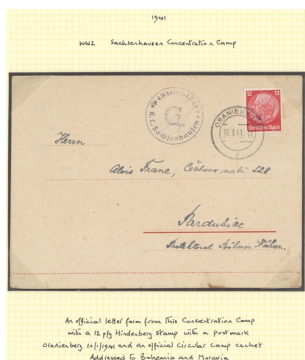 1941
WW2 Sachsenhausen Concentration Camp
K.L. Sachsenhausen
G
ORANIENBURG
10.1.41
12 12
Deutsches Reich
Herrn
Alois Franc,
528
Pardubice
Protektorat Böhmen-Mähren
An official letter form from this Concentration Camp
with a 12 pfg Hindenberg stamp with a postmark
Oranienberg 10/1/1941 and an official circular camp cachet
Addressed to Bohemia and Moravia